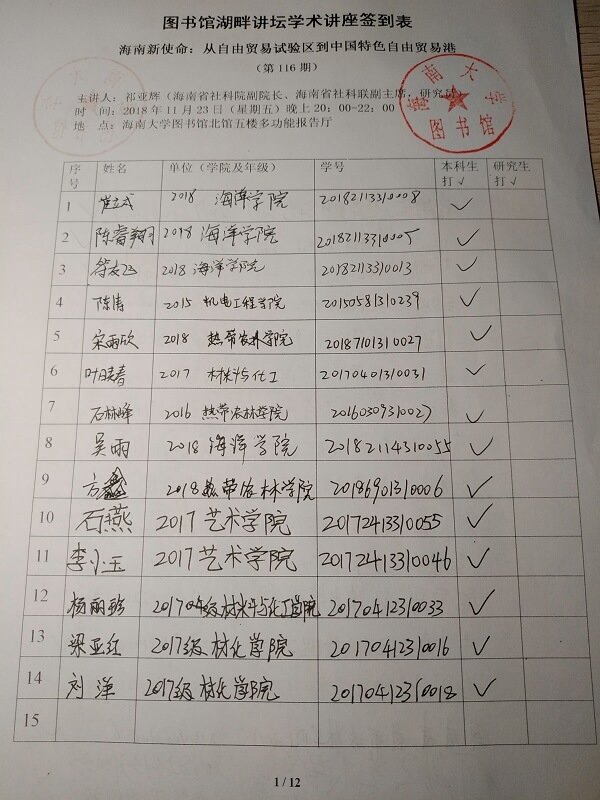 图书馆湖畔讲坛学术讲座签到表
海南新使命：从自由贸易试验区到中国特色自由贸易港
（第 116 期）
主讲人：祁亚辉（海南省社科院副院长、海南省社科联副主席，研究员
时 间：2018 年 11 月 23 日（星期五）晚上 20：00-22：00
地 点：海南大学图书馆北馆五楼多功能报告厅
海南大学
图书馆
序号 姓名 单位（学院及年级） 学号 本科生打√ 研究生打√
1 2018 海洋学院 20182113310008 √
2 陈睿翔 2018 海洋学院 20182113310005 √
3 符友飞 2018 海洋学院 20182113310013 √
4 陈涛 2015 机电工程学院 20150581310239 √
5 宋雨欣 2018 热带农林学院 20187101310027 √
6 叶晓春 2017 材料与化工 20170401310031 √
7 石林峰 2016 热带农林学院 20160309310027 √
8 吴雨 2018 海洋学院 20182114310055 √
9 方鑫 2018热带农林学院 20186901310006 √
10 石燕 2017 艺术学院 20172413310055 √
11 李小玉 2017 艺术学院 20172413310046 √
12 杨丽珍 2017级材料与化工学院 20170412310033 √
13 梁亚红 2017级 材化学院 20170412310016 √
14 刘洋 2017级 材化学院 20170412310018 √
15
1 / 12